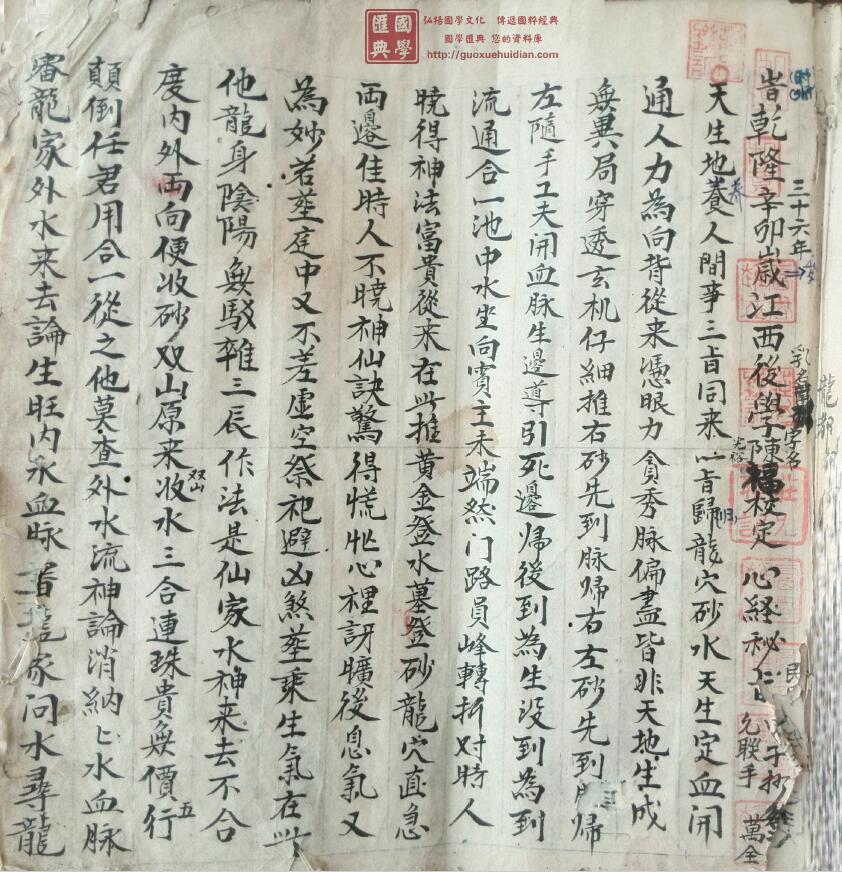 國學匯典
弘揚國學文化 傳遞國粹經典
國學匯典 您的資料庫
http://guoxuehuidian.com
三十六年
旹乾隆辛卯嵗江西後學陳福校定 心経秘旨
乳名
字名
允聯手
萬全
天生地養人間事三旨同来一旨歸龍穴砂水天生定血開
通人力為向背從来憑眼力貪秀脉偏盡皆非天地生成
無異局穿透玄机仔細推右砂先到脉歸右左砂先到脉歸
左隨手工夫開血脉生邊導引死邊帰後到為生没到為到
流通合一池中水坐向賓主未端然门路員峰轉折对時人
曉得神法富貴從来在此推黄金登水墓登砂龍穴直急
両邉佳時人不曉神仙訣驚得慌忙心裡訝曠後息氣又
為妙若塟庭中又不差虚空祭祀避凶煞塟乘生氣在此
他龍身陰陽無駁雜三辰作法是仙家水神来去不合
度内外両向便收砂双山原来收水三合連珠貴無價行
双山
五
顛倒任君用合一從之他莫查外水流神論消納上水血脉
審龍家外水来去論生旺内水血脉
家问水尋龍